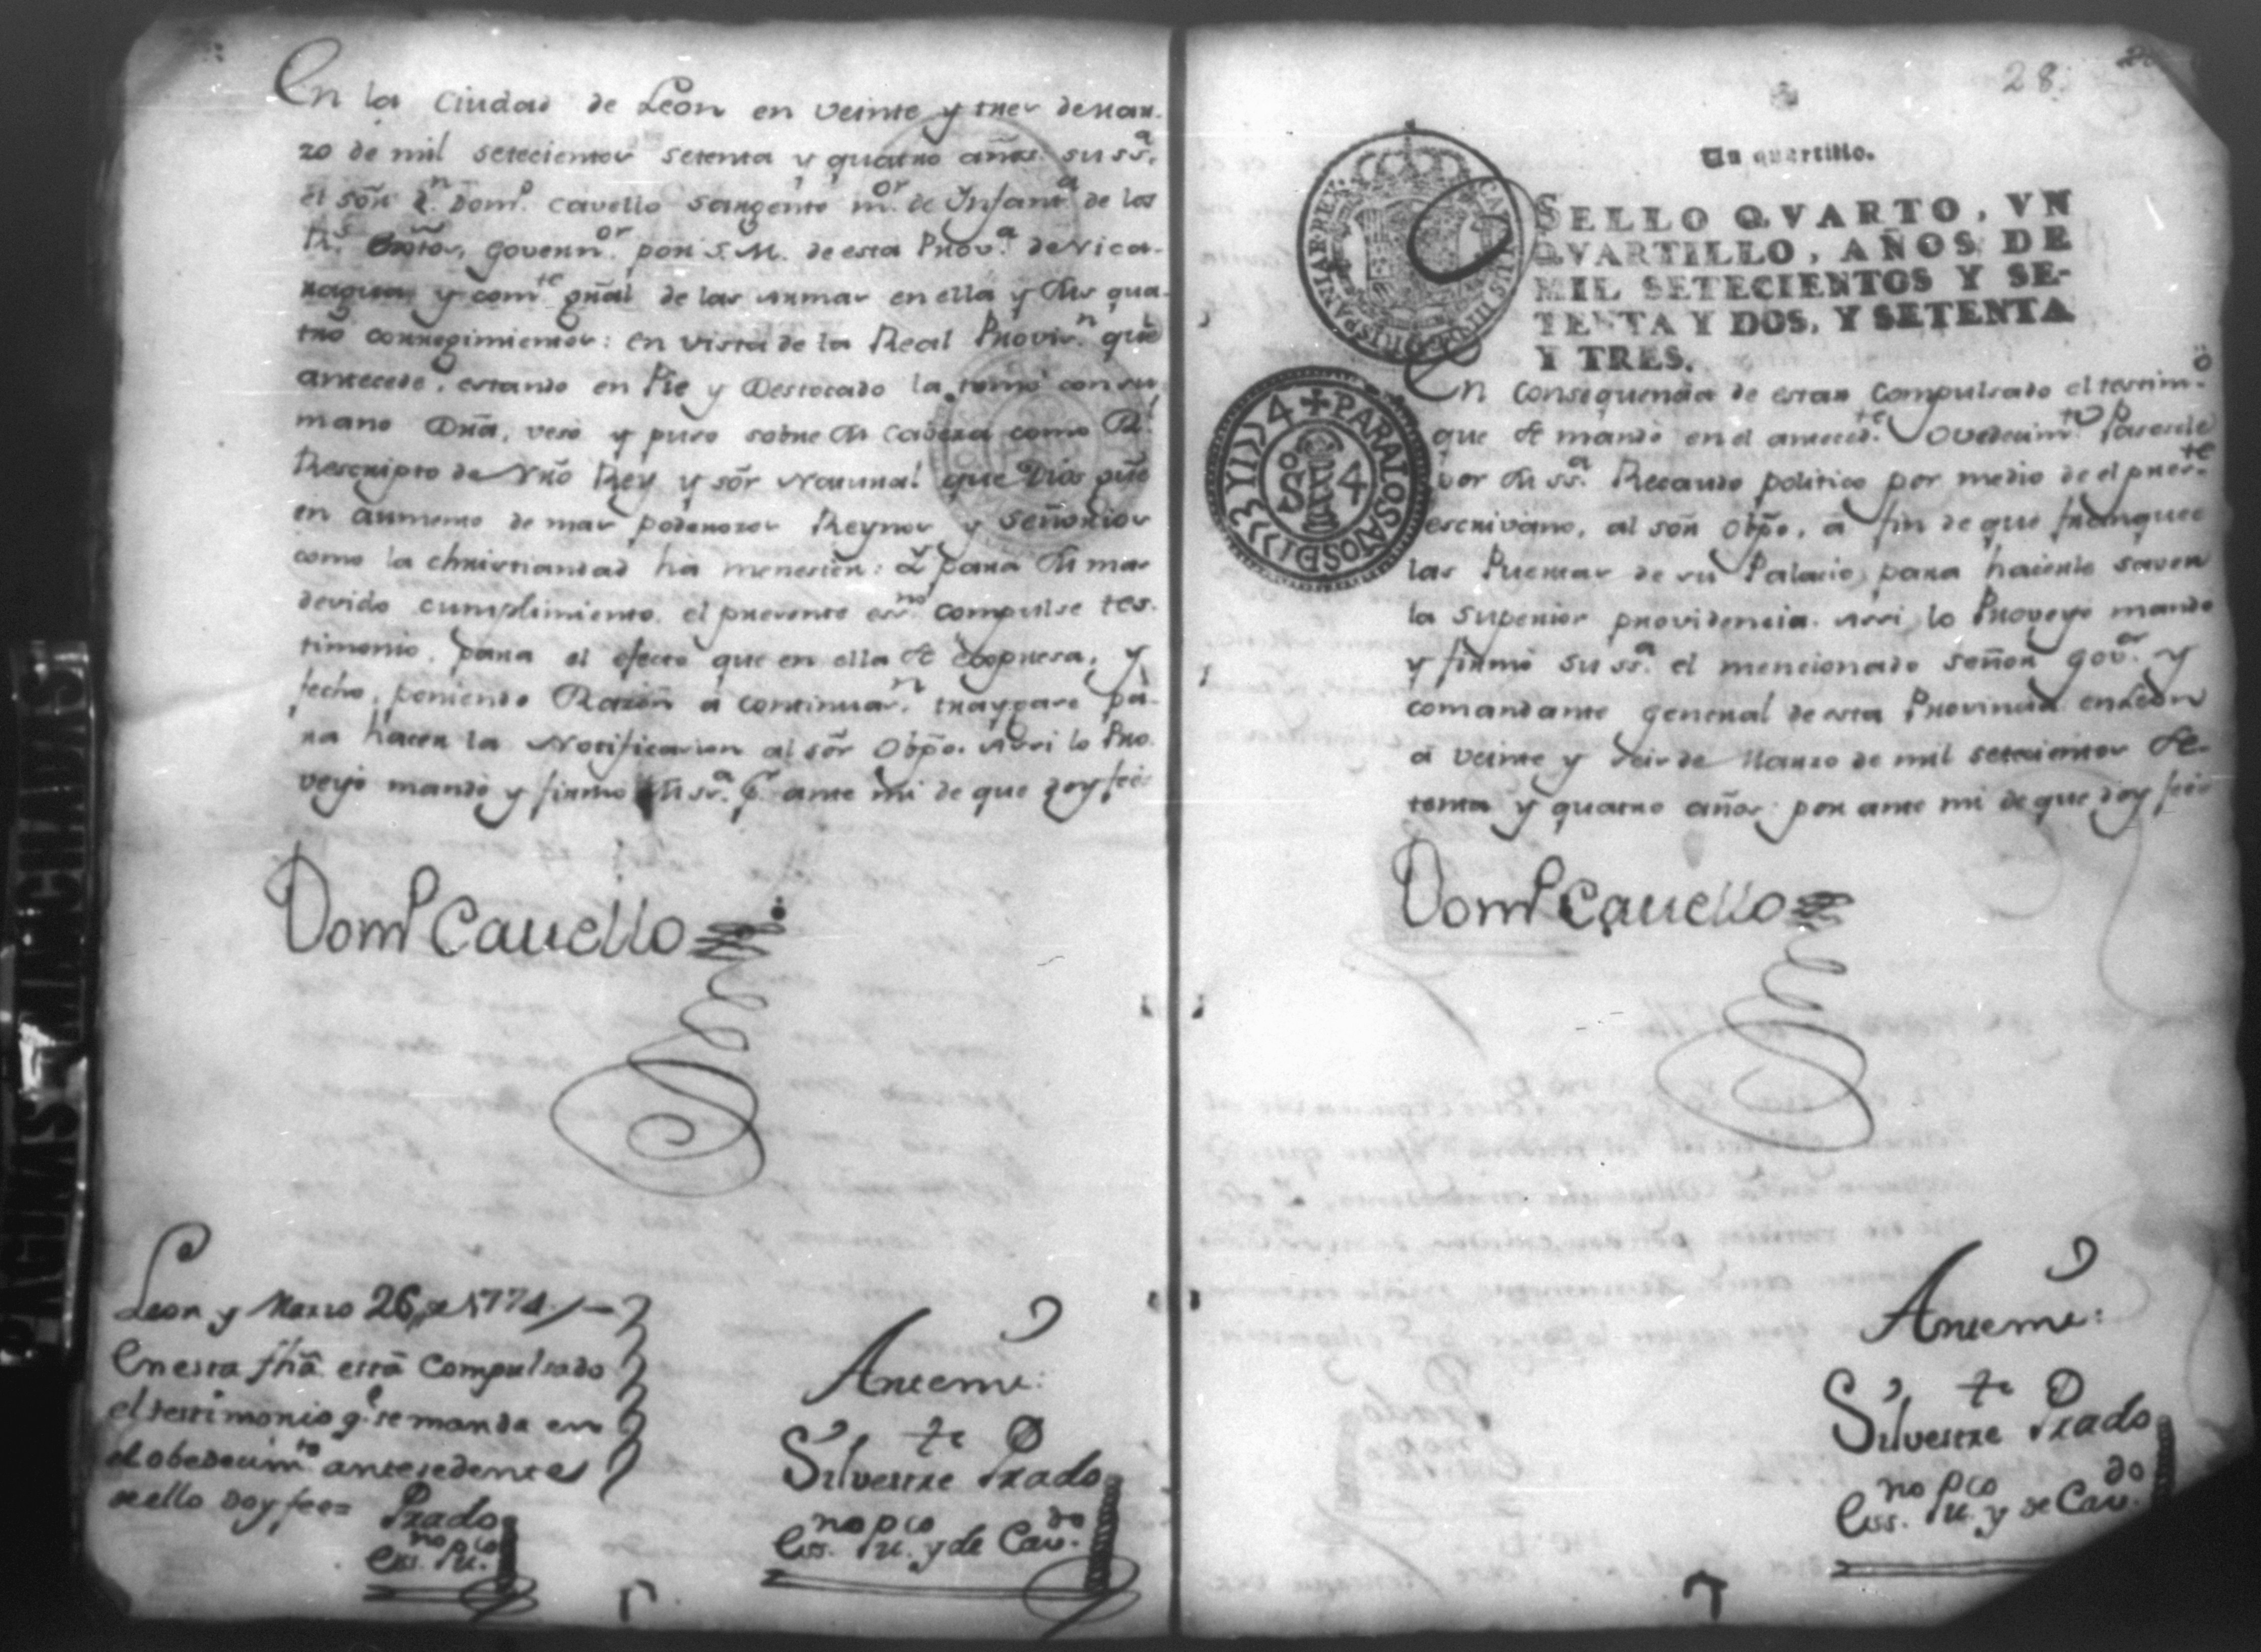 En la Ciudad de Leon en veinte y tres de Mar-
zo de mil setecientos setenta y quatro años. su sa.
el sōr dn. Domo. Cavello Sargento mor. de Infanta. de los
Rs. governor. por S. M. de esta Prova. de Nica-
ragua y comte. gñal de las Armas en ella y sus qua-
tro corregimientos: en vista de la Real Provin. que
antecede, estando en Pie y Destocado la tomó con su
mano dña, vesó y puso sobre su Cabeza como Rl.
Rescripto de Nrō Rey y sōr Natural que Dios güe
en aumento de mas poderosos Reynos y Señorios
como la christiandad há menester: Y para su mas
devido cumplimiento, el presente esno. compulse tes-
timonio, para el efecto que en ella se expresa, y
fecho, poniendo Razōn á continuan. traygase pa-
ra hacer la Notificacion al sōr Obpō. Assi lo Pro-
veyó mandó y firmó su sa. Pr. ante mi de que doy feé
Domo Cauello
Leon y Marzo 26, de 1774
En esta fhā. está Compulsado
el testimonio qe. se manda en
el obedecimto. antesedente
de ello doy fee=
Prado
Essno. Puco.
Ante mi:
Silvestre te Prado
Essno. Puco. y de Cavdo.
28.
Un quartillo.
SELLO QVARTO, VN
QVARTILLO, AÑOS DE
MIL SETECIENTOS Y SE-
TENTA Y DOS, Y SETENTA
Y TRES.
CAROLUS III D.G. HISPANIAR. REX
PARA LOS AÑOS DI
S 4
En Consequencia de estar Compulsado el testimo.
que se mandó en el antecedte. Ovedecimto. Pasesele
por su sa. Recaudo politico por medio de el preste.
escrivano, al sōr Obpō, á fin de que franquee
las Puertas de su Palacio, para hacerle saver
la Superior providencia. Assi lo Proveyó mandó
y firmó su sa. el mencionado Señor govor. y
comandante general de esta Provincia en Leon
á veinte y seis de Marzo de mil setecientos se-
tenta y quatro años: por ante mi de que doy feé
Domo Cauello
Ante mi:
Silvestre te Prado
Essno. Puco. y de Cavdo.
PAGINAS MANCHADAS